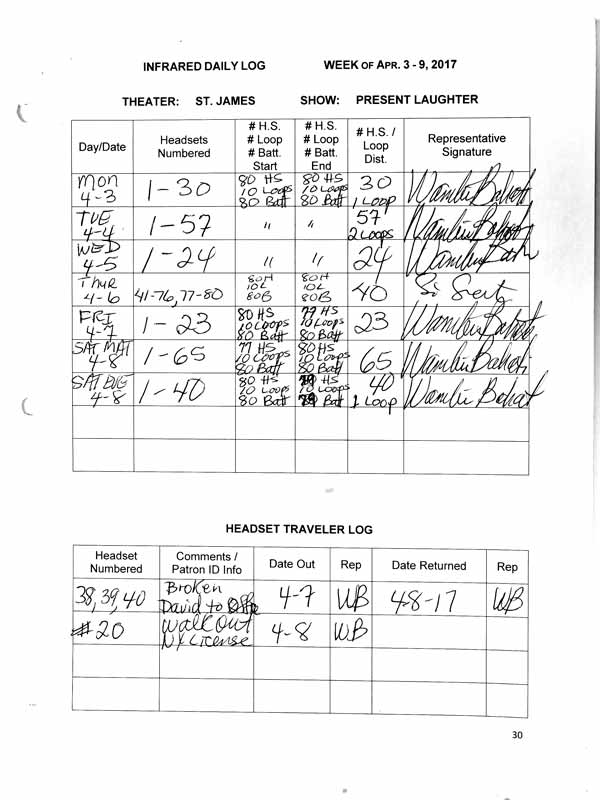 INFRARED DAILY LOG WEEK OF APR. 3 - 9, 2017
THEATER: ST. JAMES SHOW: PRESENT LAUGHTER
Day/Date Headsets Numbered # H.S. # Loop # Batt. Start # H.S. # Loop # Batt. End # H.S. / Loop Dist. Representative Signature
MON 4-3 1-30 80 HS 10 Loops 80 Batt 80 HS 10 Loops 80 Batt 30 1 Loop
TUE 4-4 1-57 " " 57 2 Loops
WED 4-5 1-24 " " 24
Thur 4-6 41-76, 77-80 80H 10L 80B 80H 10L 80B 40
FRI 4-7 1-23 80 HS 10 Loops 80 Batt 77 HS 10 Loops 80 Batt 23
SAT MAT 4-8 1-65 77 HS 10 Loops 80 Batt 80 HS 10 Loops 80 Batt 65
SAT EVE 4-8 1-40 80 HS 10 Loops 80 Batt 79 HS 10 Loops 79 Batt 40 1 Loop
HEADSET TRAVELER LOG
Headset Numbered Comments / Patron ID Info Date Out Rep Date Returned Rep
38, 39, 40 Broken David to 4-7 WB 4-8-17 WB
#20 Walk Out NY License 4-8 WB
30